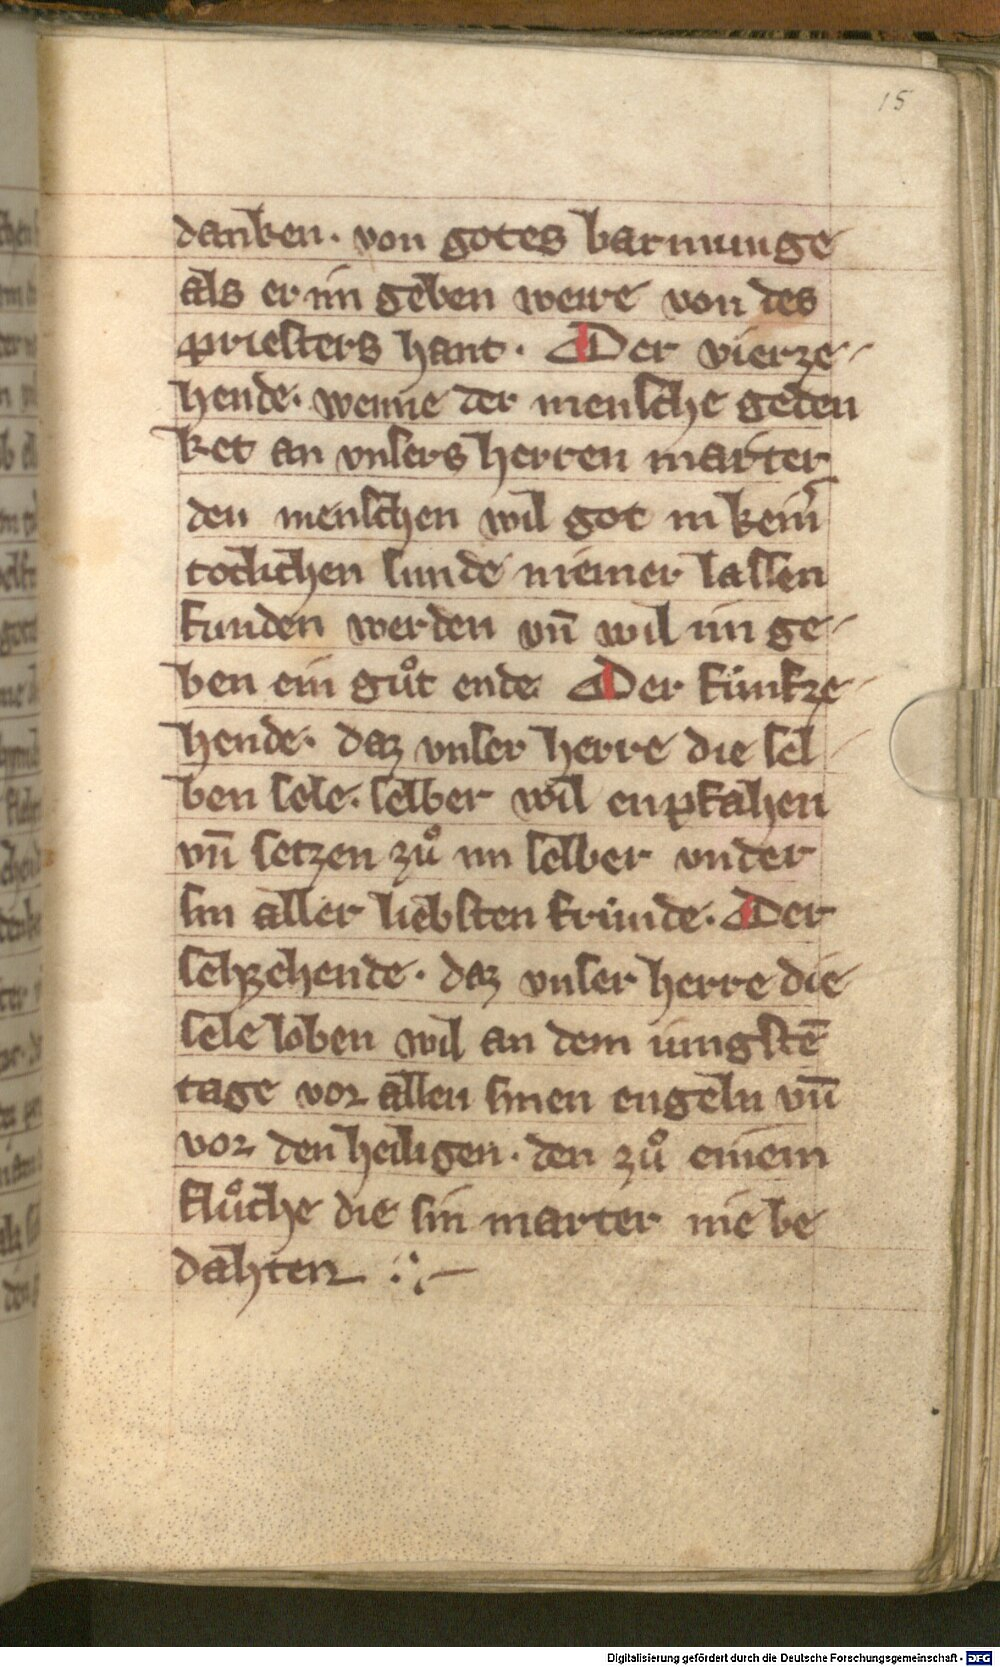 15
danken. von gotes barmunge
als er im geben were von des
priesters hant. Der vierze-
hende. wenne der mensche geden
ket an vnsers herren marter
den menschen wil got in keinr̄
totlichen sunde niemer lassen
funden werden vn̄ wil im ge-
ben ein gůt ende. Der fünfze-
hende. daz vnser herre die sel-
ben sele. selber wil enpfahen
vn̄ setzen zů im selber vnder
sin aller liebsten fründe. Der
sehzehende. daz vnser herre die
sele loben wil an dem iungstē
tage vor allen sinen engeln vn̄
vor den heiligen. den zů einem
flůche die sin marter nie be
dahten
Digitalisierung gefördert durch die Deutsche Forschungsgemeinschaft - DFG